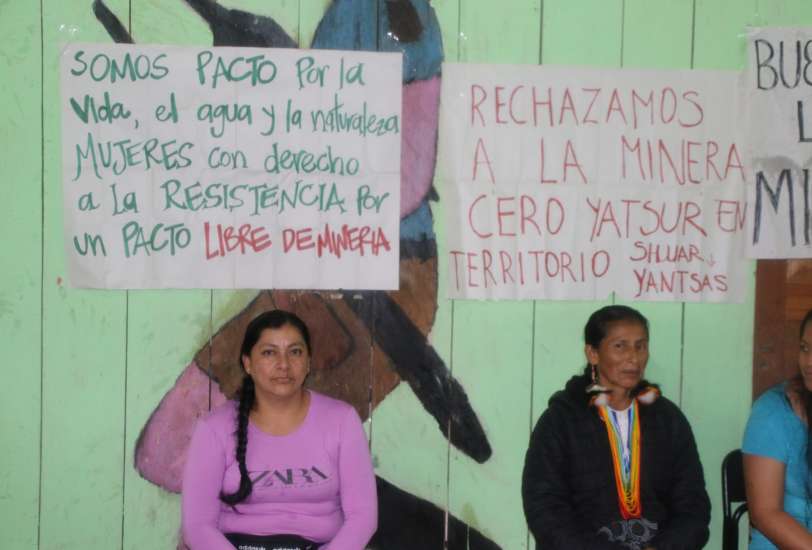 SOMOS PACTO Por la
vida, el agua y la naturaleza
MUJERES con derecho
a la RESISTENCIA Por
un PACTO LIBRE DE MINERIA
RECHAZAMOS
A LA MINERA
CERO YATSUR EN
TERRITORIO SHUAR
YANTSAS
BU
L
MI
ZARA